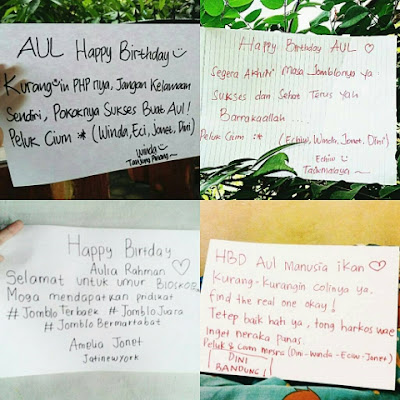 AUL Happy Birthday
Kurang"in PHP nya, Jangan Kelamaan
Sendiri, Pokoknya Sukses Buat Aul!
Peluk Cium :* (Winda, Eci, Janet, Dini)
Winda
Tanjung Pinang
Happy Birthday AUL
Segera Akhiri Masa Jomblonya ya
Sukses dan Sehat Terus yah
Barrakaallah ....
Peluk Cium :* (Echiw, Winda, Jonet, Dini)
Echiw
Tasikmalaya
Happy Birtday
Aulia Rahman
Selamat untuk umur BIOSKOP
Moga mendapatkan predikat
#Jomblo Terbaek #Jomblo Juara
#Jomblo Bermartabat
Amelia Jonet
Jatinewyork
HBD Aul Manusia ikan
Kurang-kurangin colinya ya.
find the real one okay!
Tetep baik hati ya, tong harkos wae
Inget neraka panas.
Peluk & Cama mesra (Dini-Winda-Eciw-Jonet)
DINI
BANDUNG